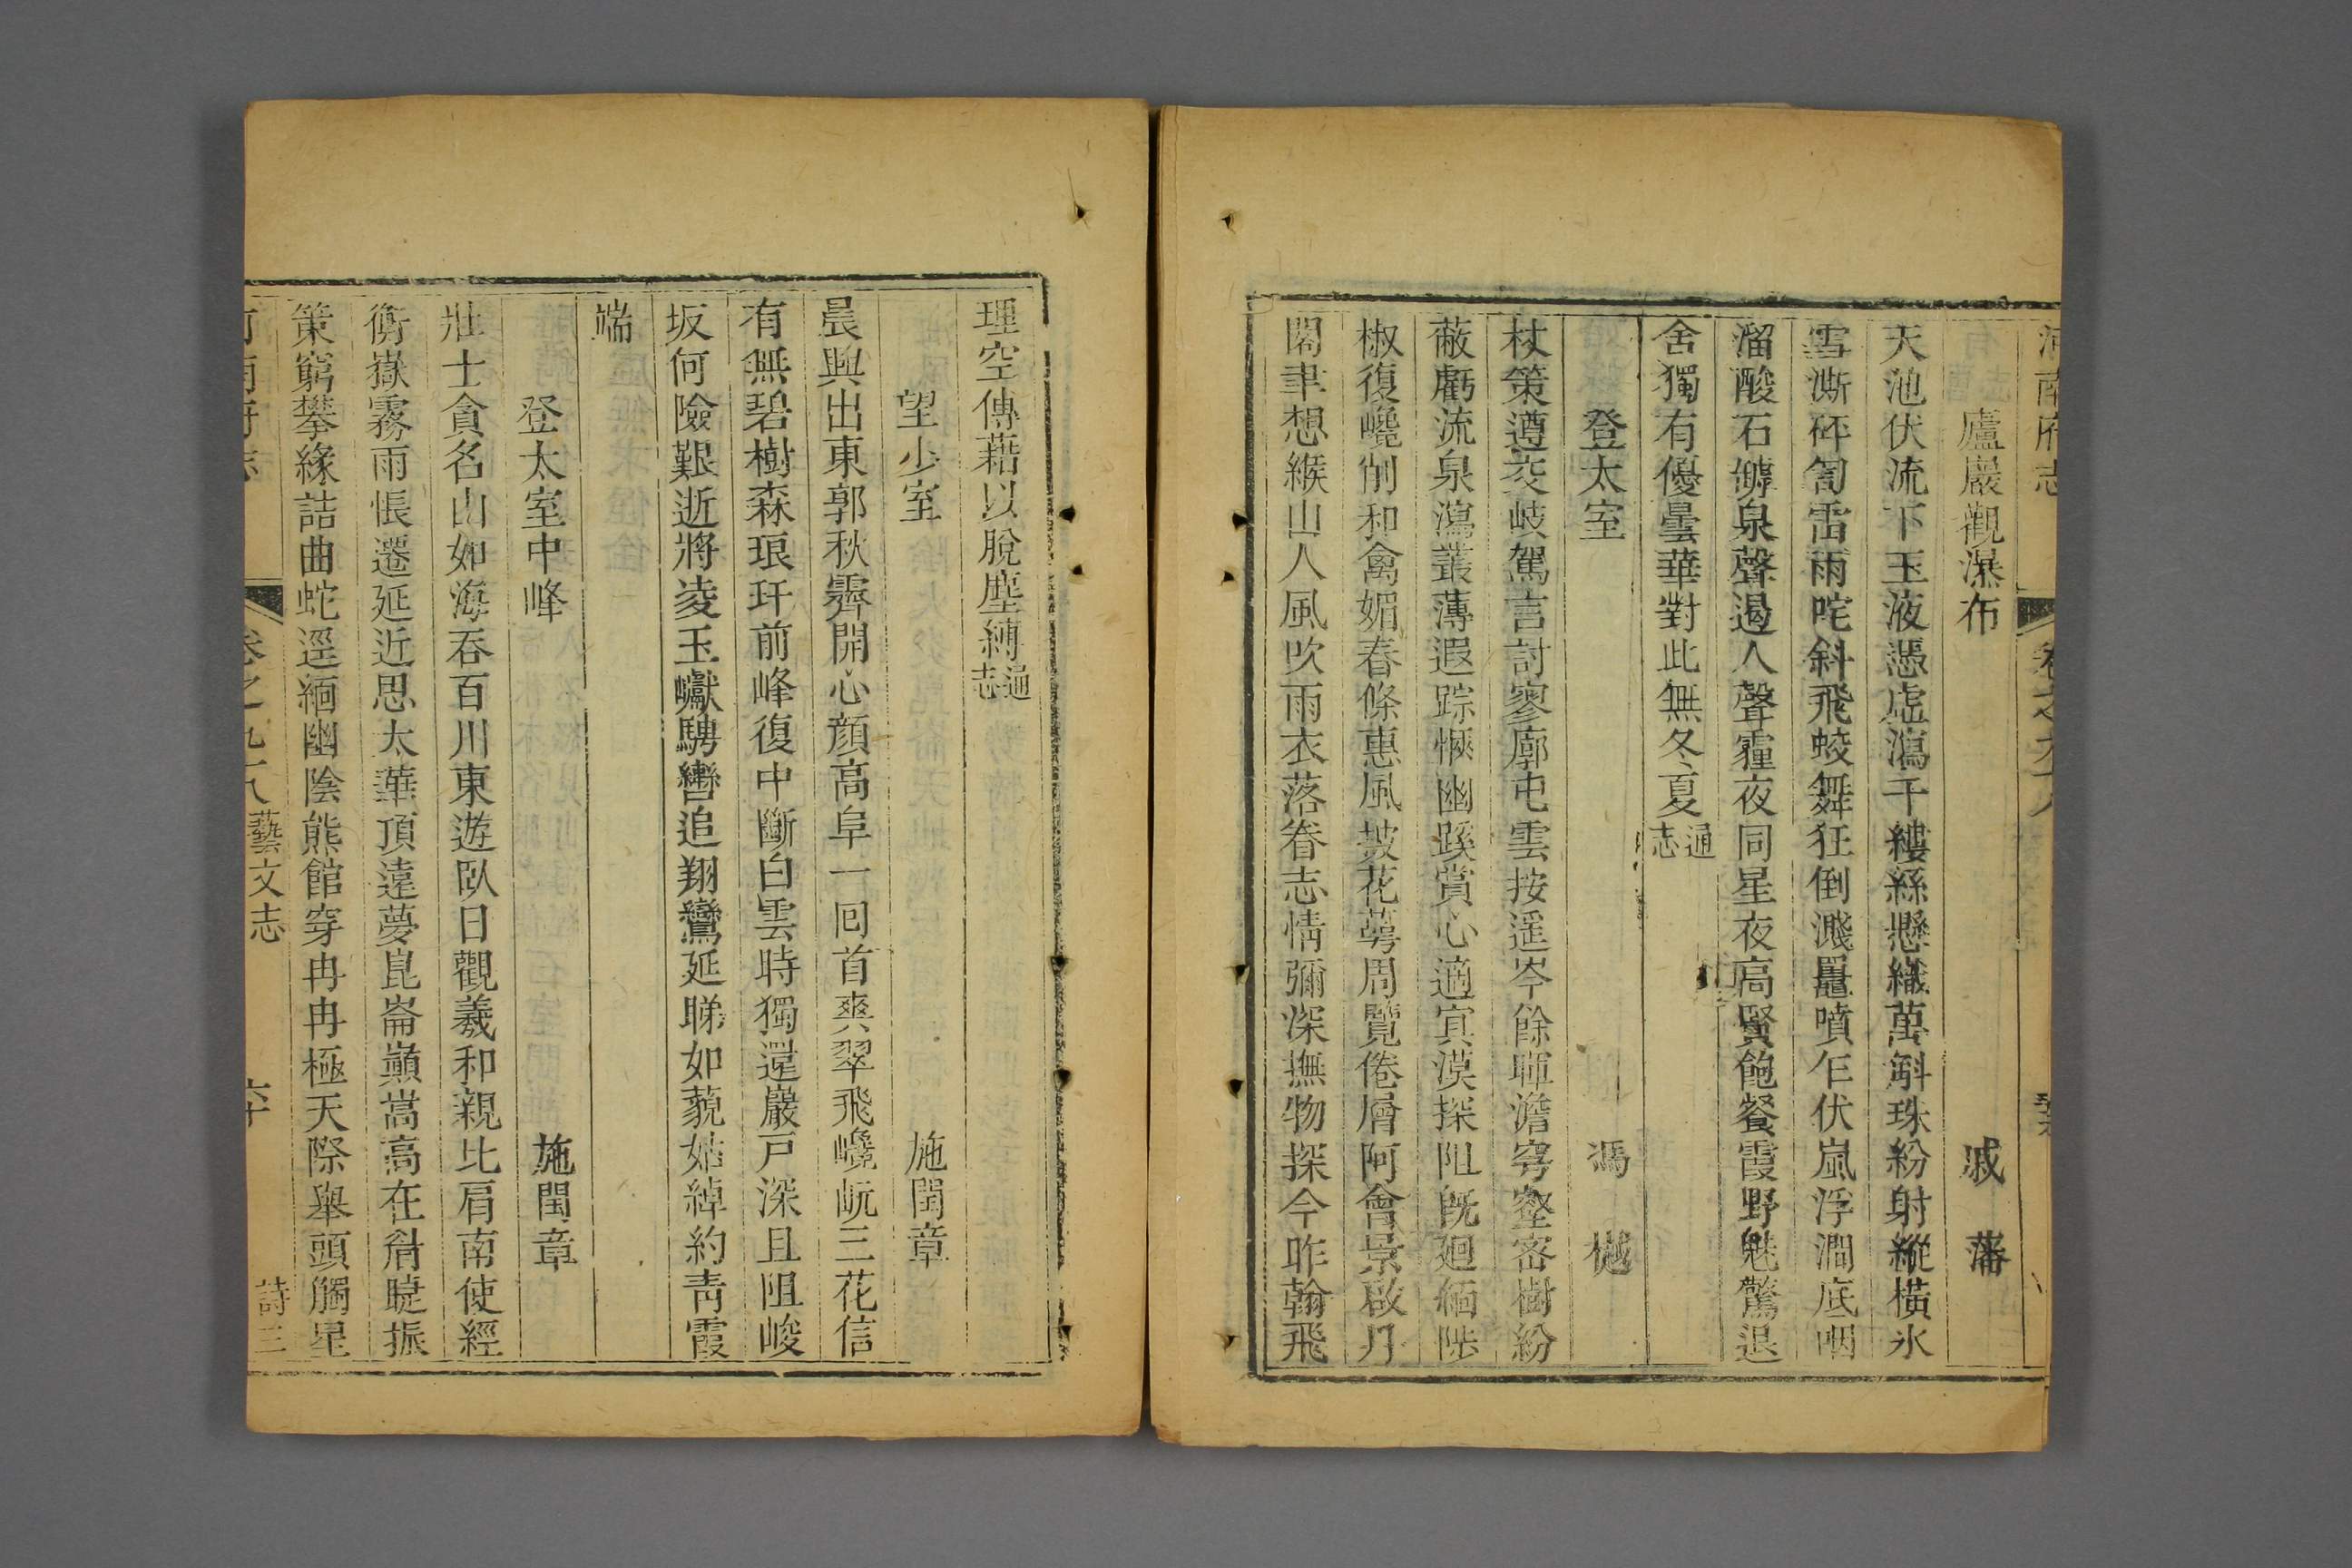 河南府志 卷之九十八
廬巖觀瀑布 戚 藩
天池伏流下玉液憑虛瀉千縷絲懸織萬斛珠紛射縱橫氷
雪澌砰訇雷雨咤斜飛蛟舞狂倒濺鼉噴乍伏嵐浮澗底咽
溜酸石罅泉聲遏人聲霾夜同星夜高賢飽餐霞野魅驚退
舍獨有優曇華對此無冬夏通志
登太室 馮 樾
杖策遵交岐駕言討寥廓屯雲按遥岑餘暉澹穹壑密樹紛
蔽虧流泉瀉叢薄遐踪愜幽蹊賞心適寘漠探阻旣廻緬陟
椒復巉削和禽媚春條惠風披花萼周覽倦層阿會景啟月
閣聿想緱山人風吹雨衣落眷志情彌深撫物探今昨翰飛
理空傳藉以脫塵縛通志
望少室 施閏章
晨興出東郭秋霽開心顔高阜一囘首爽翠飛巉岏三花信
有無碧樹森琅玕前峰復中斷白雲時獨還巖戸深且阻峻
坂何險艱逝將凌玉巘騁轡追翔鸞延睇如藐姑綽約靑霞
端
登太室中峰 施閏章
壯士貪名山如海吞百川東遊臥日觀羲和親比肩南使經
衡嶽霧雨悵遷延近思太華頂遠夢崑崙巔嵩高在眥睫振
策窮攀緣詰曲蛇逕緬幽陰熊館穿冉冉極天際舉頭觸星
河南府志 卷之九十八 藝文志 六十 詩三